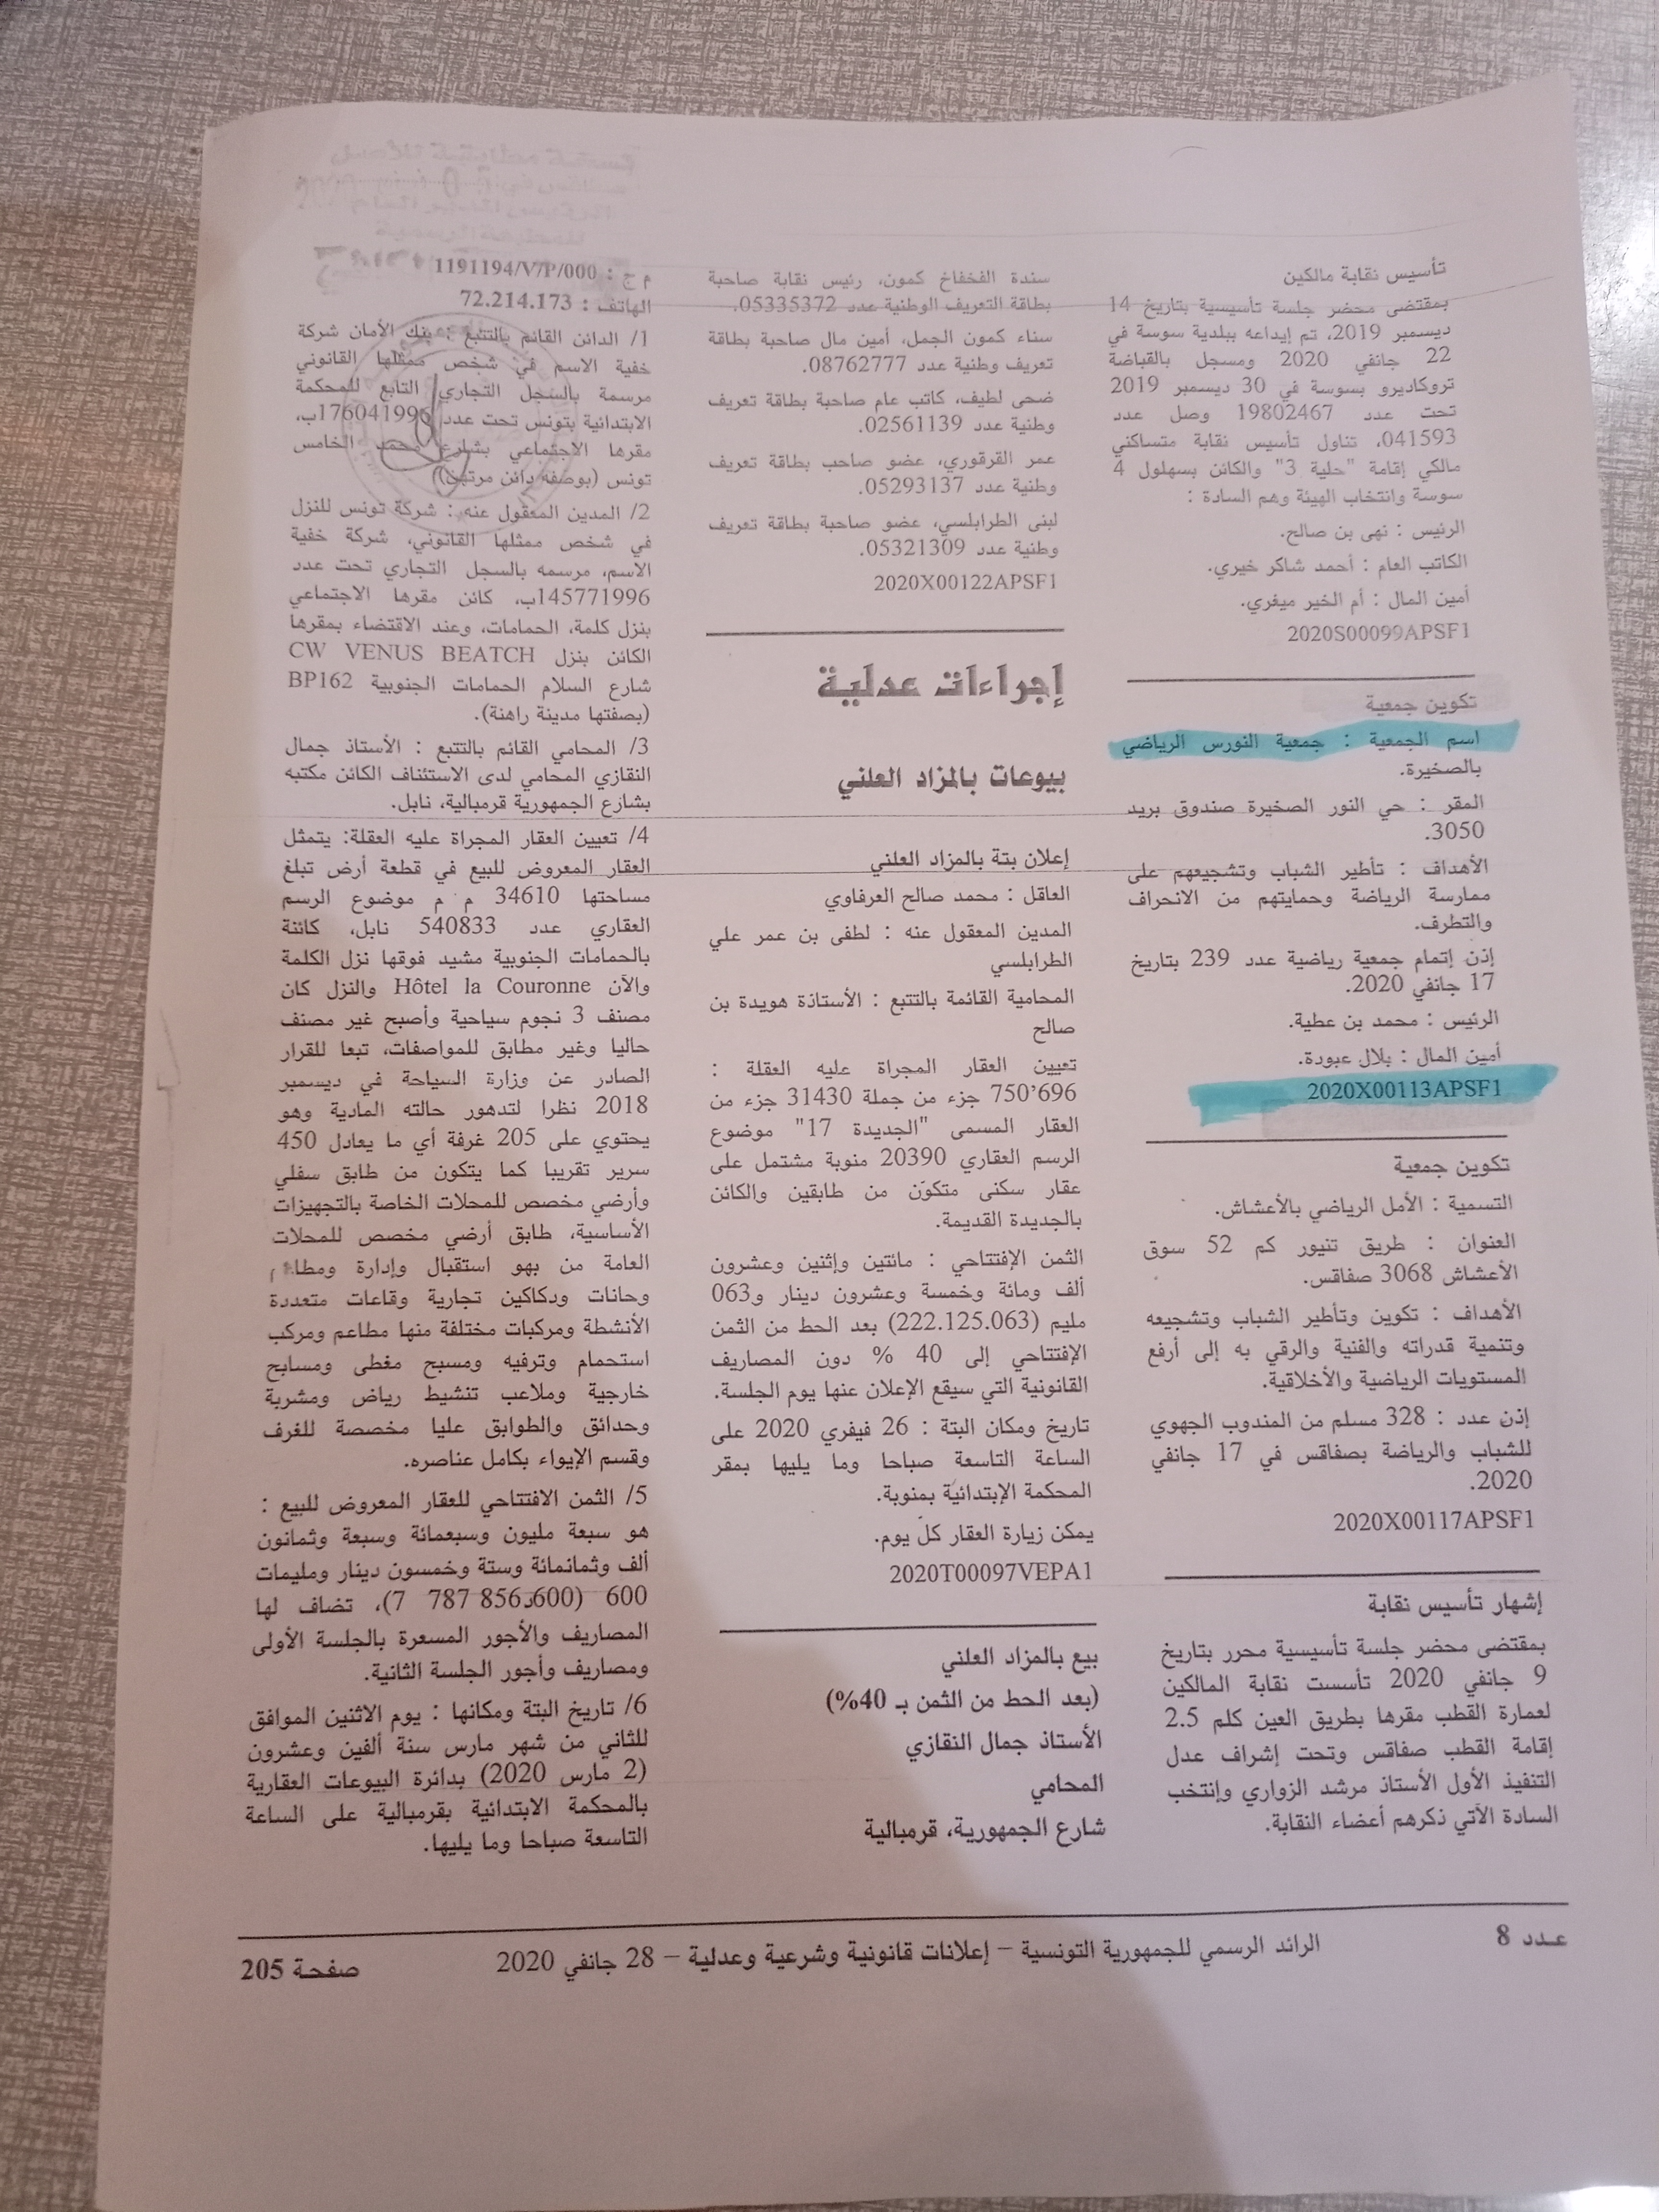 تأسيس نقابة مالكين
بمقتضى محضر جلسة تأسيسية بتاريخ 14
ديسمبر 2019، تم إيداعه ببلدية سوسة في
22 جانفي 2020 ومسجل بالقباضة
تروكاديرو بسوسة في 30 ديسمبر 2019
تحت عدد 19802467 وصل عدد
041593، تناول تأسيس نقابة متساكني
مالكي إقامة "حلية 3" والكائن بسهلول 4
سوسة وانتخاب الهيئة وهم السادة :
الرئيس : نهى بن صالح.
الكاتب العام : أحمد شاكر خيري.
أمين المال : أم الخير ميغري.
2020S00099APSF1
تكوين جمعية
اسم الجمعية : جمعية النورس الرياضي
بالصخيرة.
المقر : حي النور الصخيرة صندوق بريد
3050.
الأهداف : تأطير الشباب وتشجيعهم على
ممارسة الرياضة وحمايتهم من الانحراف
والتطرف.
إذن إتمام جمعية رياضية عدد 239 بتاريخ
17 جانفي 2020.
الرئيس : محمد بن عطية.
أمين المال : بلال عبودة.
2020X00113APSF1
تكوين جمعية
التسمية : الأمل الرياضي بالأعشاش.
العنوان : طريق تنيور كم 52 سوق
الأعشاش 3068 صفاقس.
الأهداف : تكوين وتأطير الشباب وتشجيعه
وتنمية قدراته والفنية والرقي به إلى أرفع
المستويات الرياضية والأخلاقية.
إذن عدد : 328 مسلم من المندوب الجهوي
للشباب والرياضة بصفاقس في 17 جانفي
2020.
2020X00117APSF1
إشهار تأسيس نقابة
بمقتضى محضر جلسة تأسيسية محرر بتاريخ
9 جانفي 2020 تأسست نقابة المالكين
لعمارة القطب مقرها بطريق العين كلم 2.5
إقامة القطب صفاقس وتحت إشراف عدل
التنفيذ الأول الأستاذ مرشد الزواري وإنتخب
السادة الآتي ذكرهم أعضاء النقابة.
سندة الفخفاخ كمون، رئيس نقابة صاحبة
بطاقة التعريف الوطنية عدد 05335372.
سناء كمون الجمل، أمين مال صاحبة بطاقة
تعريف وطنية عدد 08762777.
ضحى لطيف، كاتب عام صاحبة بطاقة تعريف
وطنية عدد 02561139.
عمر القرقوري، عضو صاحب بطاقة تعريف
وطنية عدد 05293137.
لبنى الطرابلسي، عضو صاحبة بطاقة تعريف
وطنية عدد 05321309.
2020X00122APSF1
إجراءات عدلية
بيوعات بالمزاد العلني
إعلان بتة بالمزاد العلني
العاقل : محمد صالح العرفاوي
المدين المعقول عنه : لطفى بن عمر علي
الطرابلسي
المحامية القائمة بالتتبع : الأستاذة هويدة بن
صالح
تعيين العقار المجراة عليه العقلة :
750'696 جزء من جملة 31430 جزء من
العقار المسمى "الجديدة 17" موضوع
الرسم العقاري 20390 منوبة مشتمل على
عقار سكنى متكوّن من طابقين والكائن
بالجديدة القديمة.
الثمن الإفتتاحي : مائتين وإثنين وعشرون
ألف ومائة وخمسة وعشرون دينار و063
مليم (222.125.063) بعد الحط من الثمن
الإفتتاحي إلى 40 % دون المصاريف
القانونية التي سيقع الإعلان عنها يوم الجلسة.
تاريخ ومكان البتة : 26 فيفري 2020 على
الساعة التاسعة صباحا وما يليها بمقر
المحكمة الإبتدائية بمنوبة.
يمكن زيارة العقار كل يوم.
2020T00097VEPA1
بيع بالمزاد العلني
(بعد الحط من الثمن بـ 40%)
الأستاذ جمال النقازي
المحامي
شارع الجمهورية، قرمبالية
م ج : 1191194/V/P/000
الهاتف : 72.214.173
1/ الدائن القائم بالتتبع : بنك الأمان شركة
خفية الاسم في شخص ممثلها القانوني
مرسمة بالسجل التجاري التابع للمحكمة
الابتدائية بتونس تحت عدد 176041996ب،
مقرها الاجتماعي بشارع محمد الخامس
تونس (بوصفه دائن مرتهن)
2/ المدين المعقول عنه : شركة تونس للنزل
في شخص ممثلها القانوني، شركة خفية
الاسم، مرسمه بالسجل التجاري تحت عدد
145771996ب، كائن مقرها الاجتماعي
بنزل كلمة، الحمامات، وعند الاقتضاء بمقرها
الكائن بنزل CW VENUS BEATCH
شارع السلام الحمامات الجنوبية BP162
(بصفتها مدينة راهنة).
3/ المحامي القائم بالتتبع : الأستاذ جمال
النقازي المحامي لدى الاستئناف الكائن مكتبه
بشارع الجمهورية قرمبالية، نابل.
4/ تعيين العقار المجراة عليه العقلة: يتمثل
العقار المعروض للبيع في قطعة أرض تبلغ
مساحتها 34610 م م موضوع الرسم
العقاري عدد 540833 نابل، كائنة
بالحمامات الجنوبية مشيد فوقها نزل الكلمة
والآن Hôtel la Couronne والنزل كان
مصنف 3 نجوم سياحية وأصبح غير مصنف
حاليا وغير مطابق للمواصفات، تبعا للقرار
الصادر عن وزارة السياحة في ديسمبر
2018 نظرا لتدهور حالته المادية وهو
يحتوي على 205 غرفة أي ما يعادل 450
سرير تقريبا كما يتكون من طابق سفلي
وأرضي مخصص للمحلات الخاصة بالتجهيزات
الأساسية، طابق أرضي مخصص للمحلات
العامة من بهو استقبال وإدارة ومطاعم
وحانات ودكاكين تجارية وقاعات متعددة
الأنشطة ومركبات مختلفة منها مطاعم ومركب
استحمام وترفيه ومسبح مغطى ومسابح
خارجية وملاعب تنشيط رياض ومشربة
وحدائق والطوابق عليا مخصصة للغرف
وقسم الإيواء بكامل عناصره.
5/ الثمن الافتتاحي للعقار المعروض للبيع :
هو سبعة مليون وسبعمائة وسبعة وثمانون
ألف وثمانمائة وستة وخمسون دينار ومليمات
600 (7 787 856د600)، تضاف لها
المصاريف والأجور المسعرة بالجلسة الأولى
ومصاريف وأجور الجلسة الثانية.
6/ تاريخ البتة ومكانها : يوم الاثنين الموافق
للثاني من شهر مارس سنة ألفين وعشرون
(2 مارس 2020) بدائرة البيوعات العقارية
بالمحكمة الابتدائية بقرمبالية على الساعة
التاسعة صباحا وما يليها.
عدد 8
الرائد الرسمي للجمهورية التونسية – إعلانات قانونية وشرعية وعدلية – 28 جانفي 2020
صفحة 205